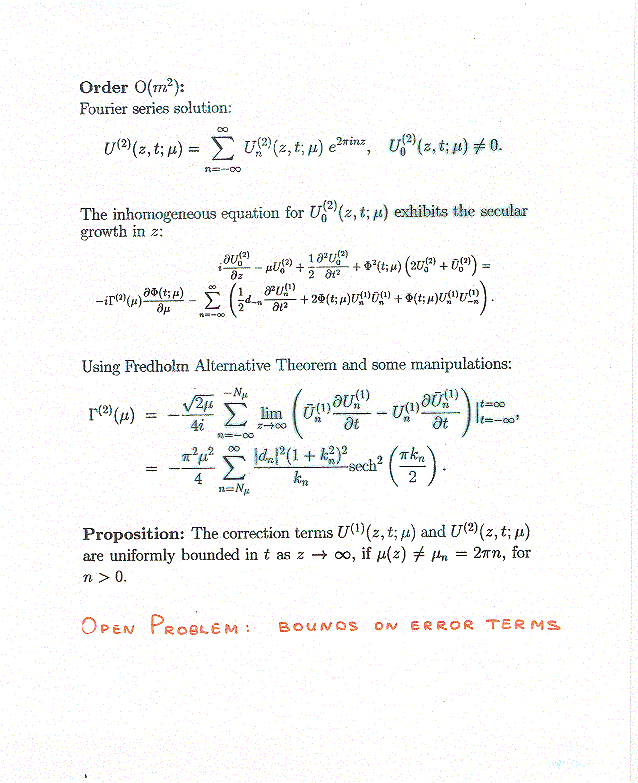 Order O(m²):
Fourier series solution:
U⁽²⁾(z, t; μ) = ∑_{n=−∞}^{∞} U_n⁽²⁾(z, t; μ) e^{2πinz}, U_0⁽²⁾(z, t; μ) ≠ 0.
The inhomogeneous equation for U_0⁽²⁾(z, t; μ) exhibits the secular
growth in z:
i ∂U_0⁽²⁾/∂z − μU_0⁽²⁾ + 1/2 ∂²U_0⁽²⁾/∂t² + Φ²(t; μ) (2U_0⁽²⁾ + Ū_0⁽²⁾) =
−iΓ⁽²⁾(μ) ∂Φ(t; μ)/∂μ − ∑_{n=−∞}^{∞} (1/2 d_{−n} ∂²U_n⁽¹⁾/∂t² + 2Φ(t; μ)U_n⁽¹⁾Ū_n⁽¹⁾ + Φ(t; μ)U_n⁽¹⁾U_{−n}⁽¹⁾).
Using Fredholm Alternative Theorem and some manipulations:
Γ⁽²⁾(μ) = − √2μ/4i ∑_{n=−∞}^{−N_μ} lim_{z→∞} (Ū_n⁽¹⁾ ∂U_n⁽¹⁾/∂t − U_n⁽¹⁾ ∂Ū_n⁽¹⁾/∂t) |_{t=−∞}^{t=∞},
= − π²μ²/4 ∑_{n=N_μ}^{∞} |d_n|²(1 + k_n²)²/k_n sech² (πk_n/2).
Proposition: The correction terms U⁽¹⁾(z, t; μ) and U⁽²⁾(z, t; μ)
are uniformly bounded in t as z → ∞, if μ(z) ≠ μ_n = 2πn, for
n > 0.
OPEN PROBLEM: BOUNDS ON ERROR TERMS